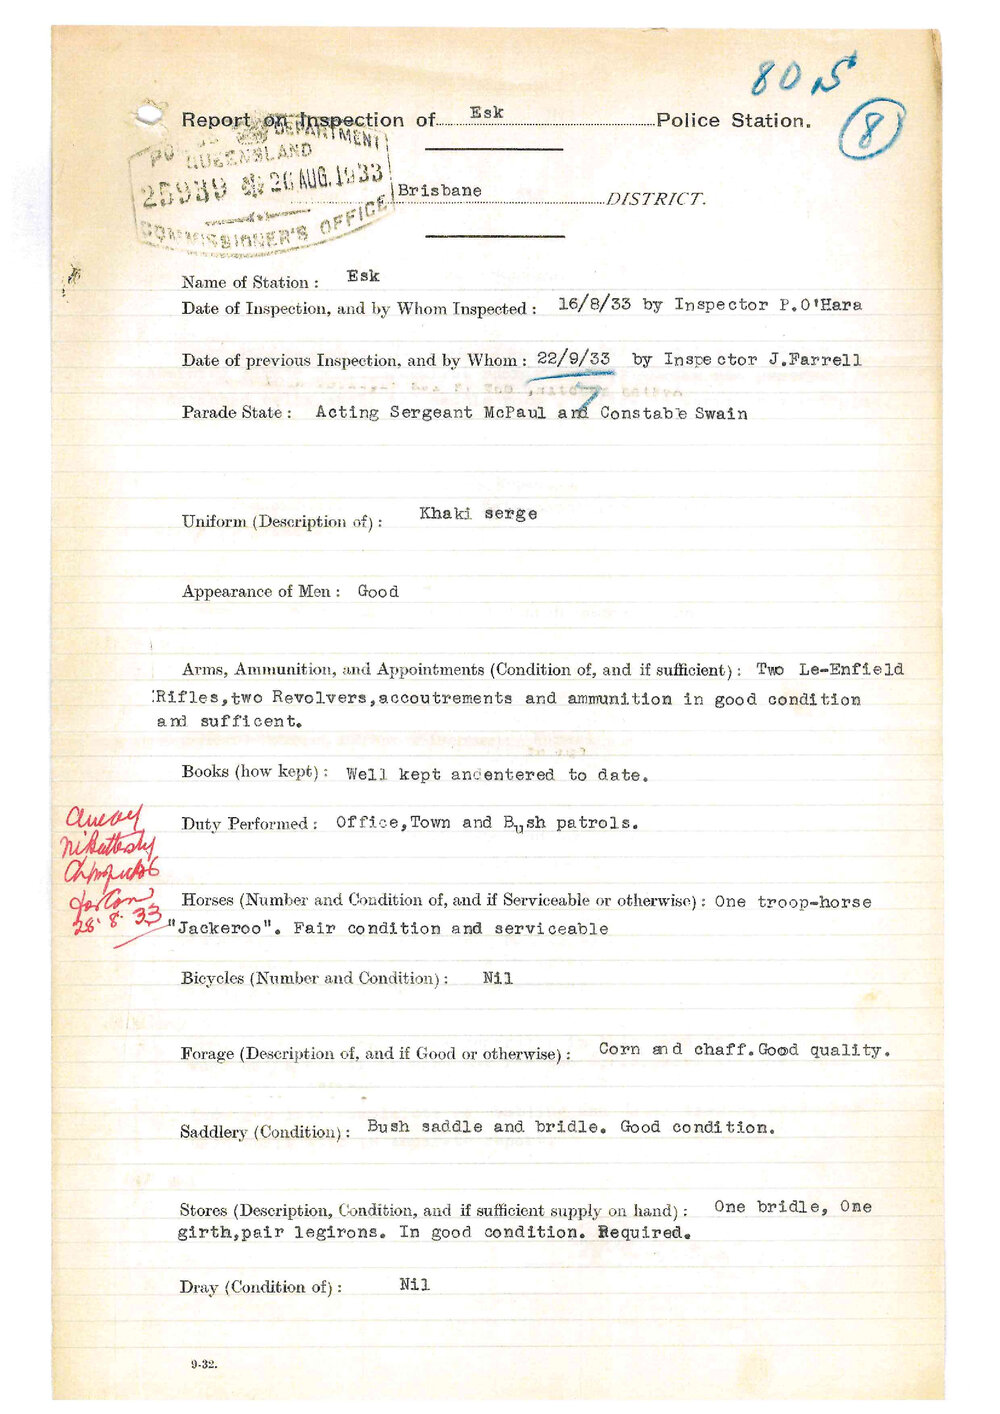 80.5
8
Report on Inspection of Esk Police Station.
POLICE DEPARTMENT
QUEENSLAND
25939 26 AUG. 1933
COMMISSIONER'S OFFICE
Brisbane DISTRICT.
Name of Station : Esk
Date of Inspection, and by Whom Inspected : 16/8/33 by Inspector P.O'Hara
Date of previous Inspection, and by Whom : 22/9/33 by Inspector J.Farrell
?
Parade State : Acting Sergeant McPaul and Constable Swain
Uniform (Description of) : Khaki serge
Appearance of Men : Good
Arms, Ammunition, and Appointments (Condition of, and if sufficient) : Two Le-Enfield
Rifles,two Revolvers,accoutrements and ammunition in good condition
and sufficent.
Books (how kept) : Well kept and entered to date.
Duty Performed : Office,Town and Bush patrols.
Horses (Number and Condition of, and if Serviceable or otherwise) : One troop-horse
"Jackeroo". Fair condition and serviceable
28.8.33
Bicycles (Number and Condition) : Nil
Forage (Description of, and if Good or otherwise) : Corn and chaff.Good quality.
Saddlery (Condition) : Bush saddle and bridle. Good condition.
Stores (Description, Condition, and if sufficient supply on hand) : One bridle, One
girth,pair legirons. In good condition. Required.
Dray (Condition of) : Nil
9-32.